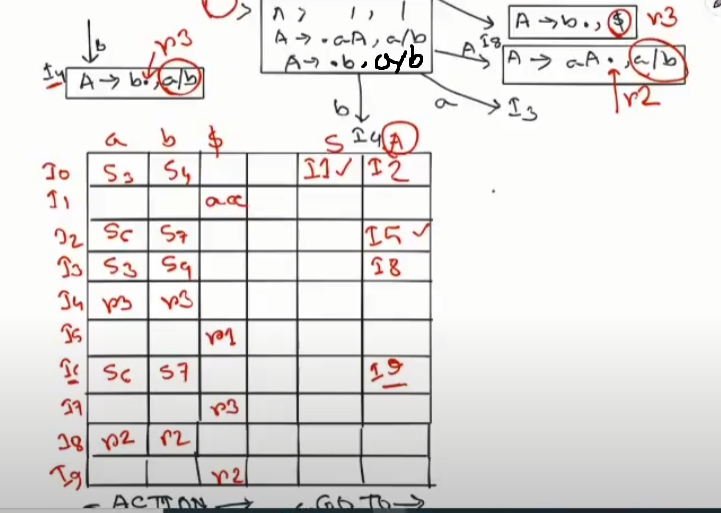 A → b . , $ r3
A → . a A , a/b
A → . b . a/b
A I8
A → a A . , a/b
r2
b r3
I4 A → b . , a/b
b a I3
I4
a b $ S A
I0 S3 S4 I1 ✓ I2
I1 acc
I2 S6 S7 I5 ✓
I3 S3 S4 I8
I4 r3 r3
I5 r1
I6 S6 S7 I9
I7 r3
I8 r2 r2
I9 r2
ACTION → GOTO →